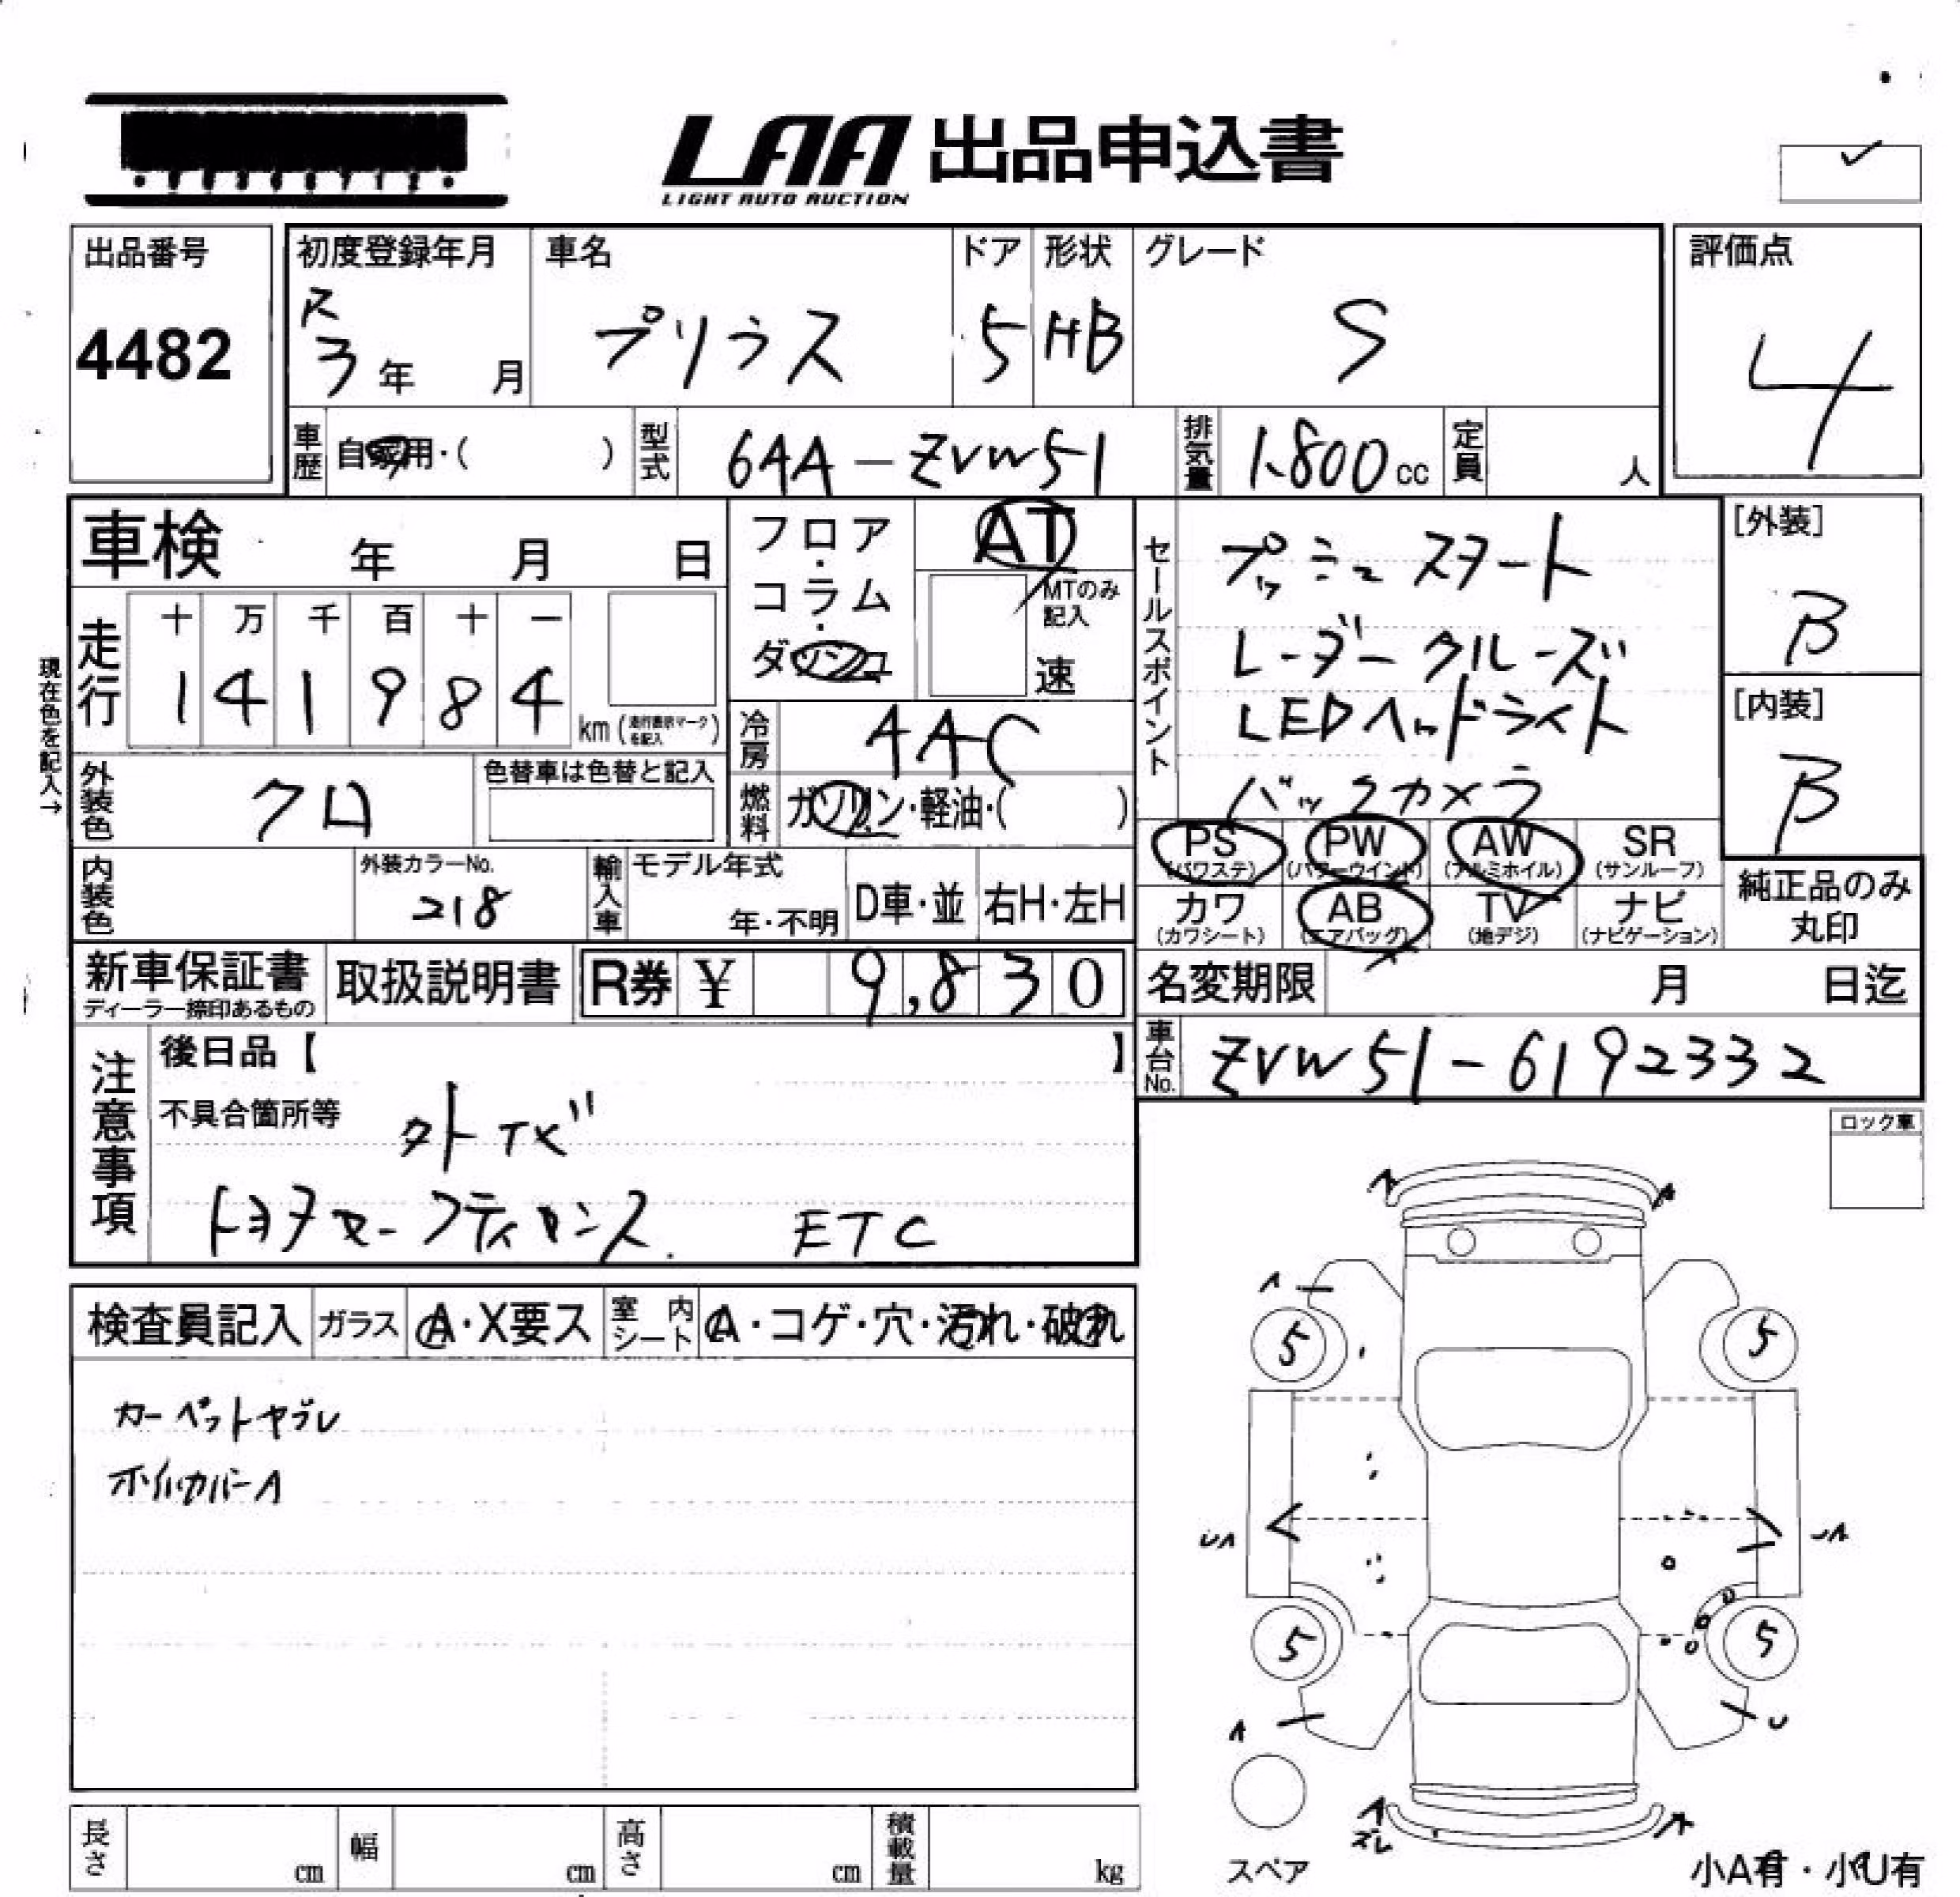 LAA 出品申込書
LIGHT AUTO AUCTION
出品番号
4482
初度登録年月
R
3年 月
車名
プリウス
ドア
5
形状
HB
グレード
S
評価点
4
車歴
自家用・( )
型式
6AA-ZVW51
排気量
1,800cc
定員
人
車検 年 月 日
現在色を記入→
走行
十 万 千 百 十 一
1 4 1 9 8 4
km (走行表示マークを記入)
フロア・コラム・ダッシュ
AT
MTのみ記入
速
冷房
AAC
燃料
ガソリン・軽油・( )
セールスポイント
プッシュスタート
レーダークルーズ
LEDヘッドライト
バックカメラ
[外装]
B
[内装]
B
外装色
クロ
色替車は色替と記入
内装色
外装カラーNo.
218
輸入車
モデル年式
年・不明
D車・並
右H・左H
PS
(パワステ)
PW
(パワーウインド)
AW
(アルミホイル)
SR
(サンルーフ)
カワ
(カワシート)
AB
(エアバッグ)
TV
(地デジ)
ナビ
(ナビゲーション)
純正品のみ
丸印
新車保証書
ディーラー捺印あるもの
取扱説明書
R券 ¥ 9,830
名変期限 月 日迄
車台No.
ZVW51-6192332
注意事項
後日品【 】
不具合箇所等
外TVﾞ
トヨタセーフティセンス. ETC
ロック車
検査員記入
ガラス
A・X要ス
室内シート
A・コゲ・穴・汚れ・破れ
カーペットヤブレ
ホイルカバーA
A
A
A
5
5
UA
UA
5
5
A
U
スペア
A
ズレ
A
小A有・小U有
長さ cm
幅 cm
高さ cm
積載量 kg